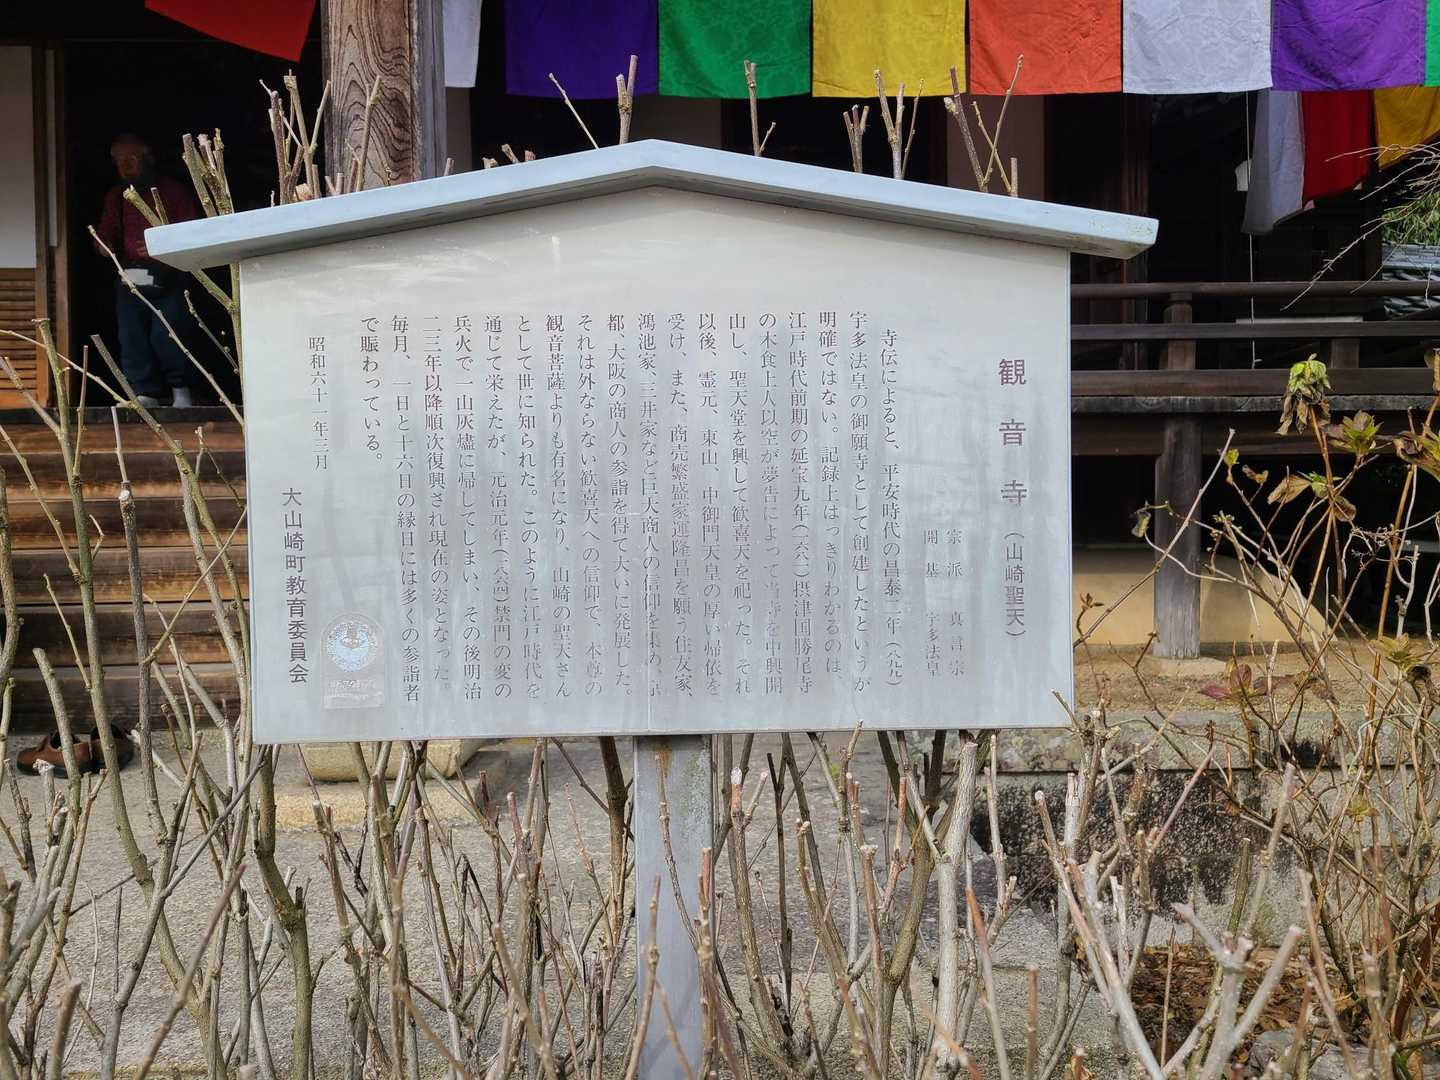 観音寺（山崎聖天）
宗派　真言宗
開基　宇多法皇
寺伝によると、平安時代の昌泰二年（八九九）
宇多法皇の御願寺として創建したというが
明確ではない。記録上はっきりわかるのは、
江戸時代前期の延宝九年（一六八一）摂津国勝尾寺
の木食上人以空が夢告によって当寺を中興開
山し、聖天堂を興して歓喜天を祀った。それ
以後、霊元、東山、中御門天皇の厚い帰依を
受け、また、商売繁盛家運隆昌を願う住友家、
鴻池家、三井家など巨大商人の信仰を集め、京
都、大阪の商人の参詣を得て大いに発展した。
それは外ならない歓喜天への信仰で、本尊の
観音菩薩よりも有名になり、山崎の聖天さん
として世に知られた。このように江戸時代を
通じて栄えたが、元治元年（一八六四）禁門の変の
兵火で一山灰燼に帰してしまい、その後明治
二三年以降順次復興され現在の姿となった。
毎月、一日と十六日の縁日には多くの参詣者
で賑わっている。
昭和六十一年三月
大山崎町教育委員会